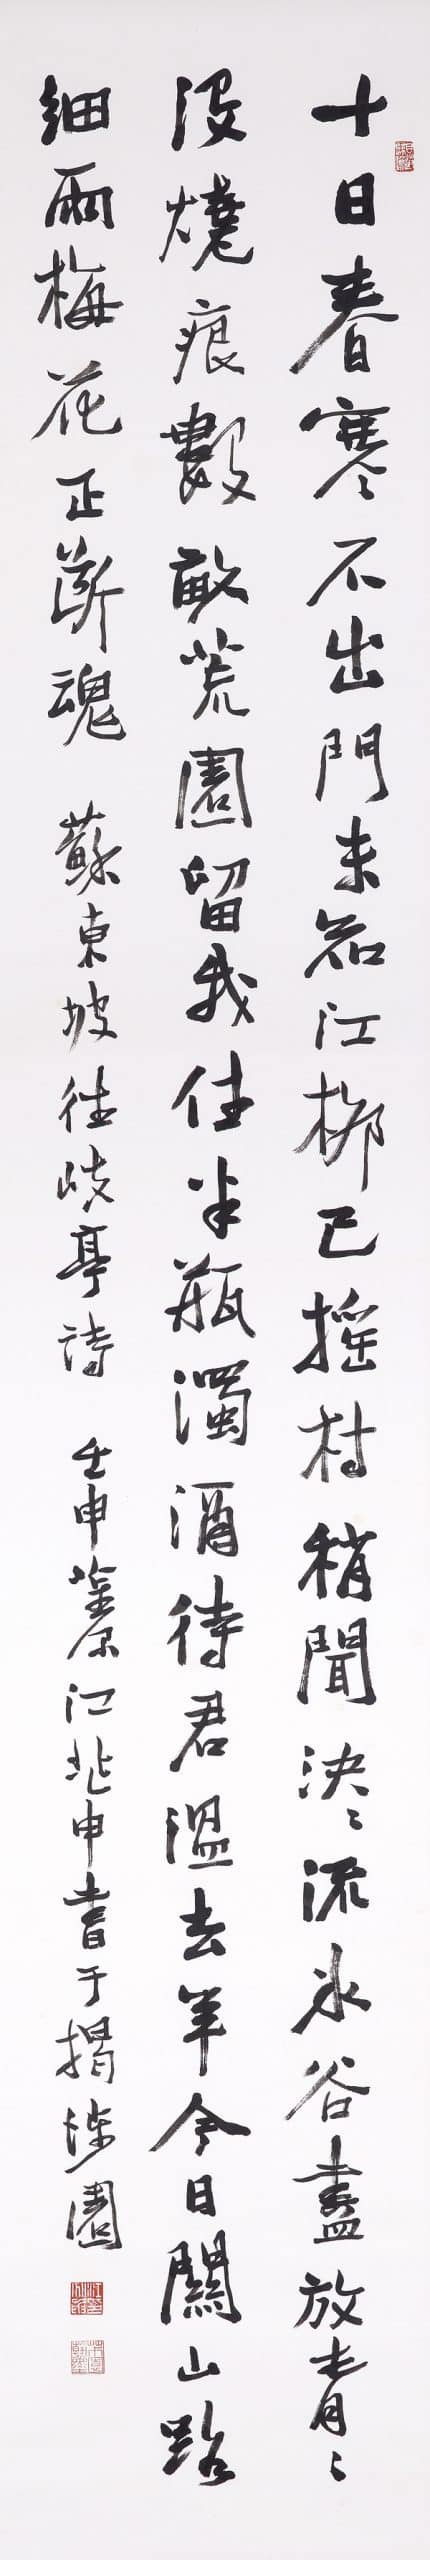 十日春寒不出門未知江柳已搖村稍聞決〻流水谷盡放青〻
沒燒痕數畝荒園留我住半瓶濁酒待君溫去年今日關山路
細雨梅花正斷魂 蘇東坡往岐亭詩 壬申茮原江兆申書于揭涉園